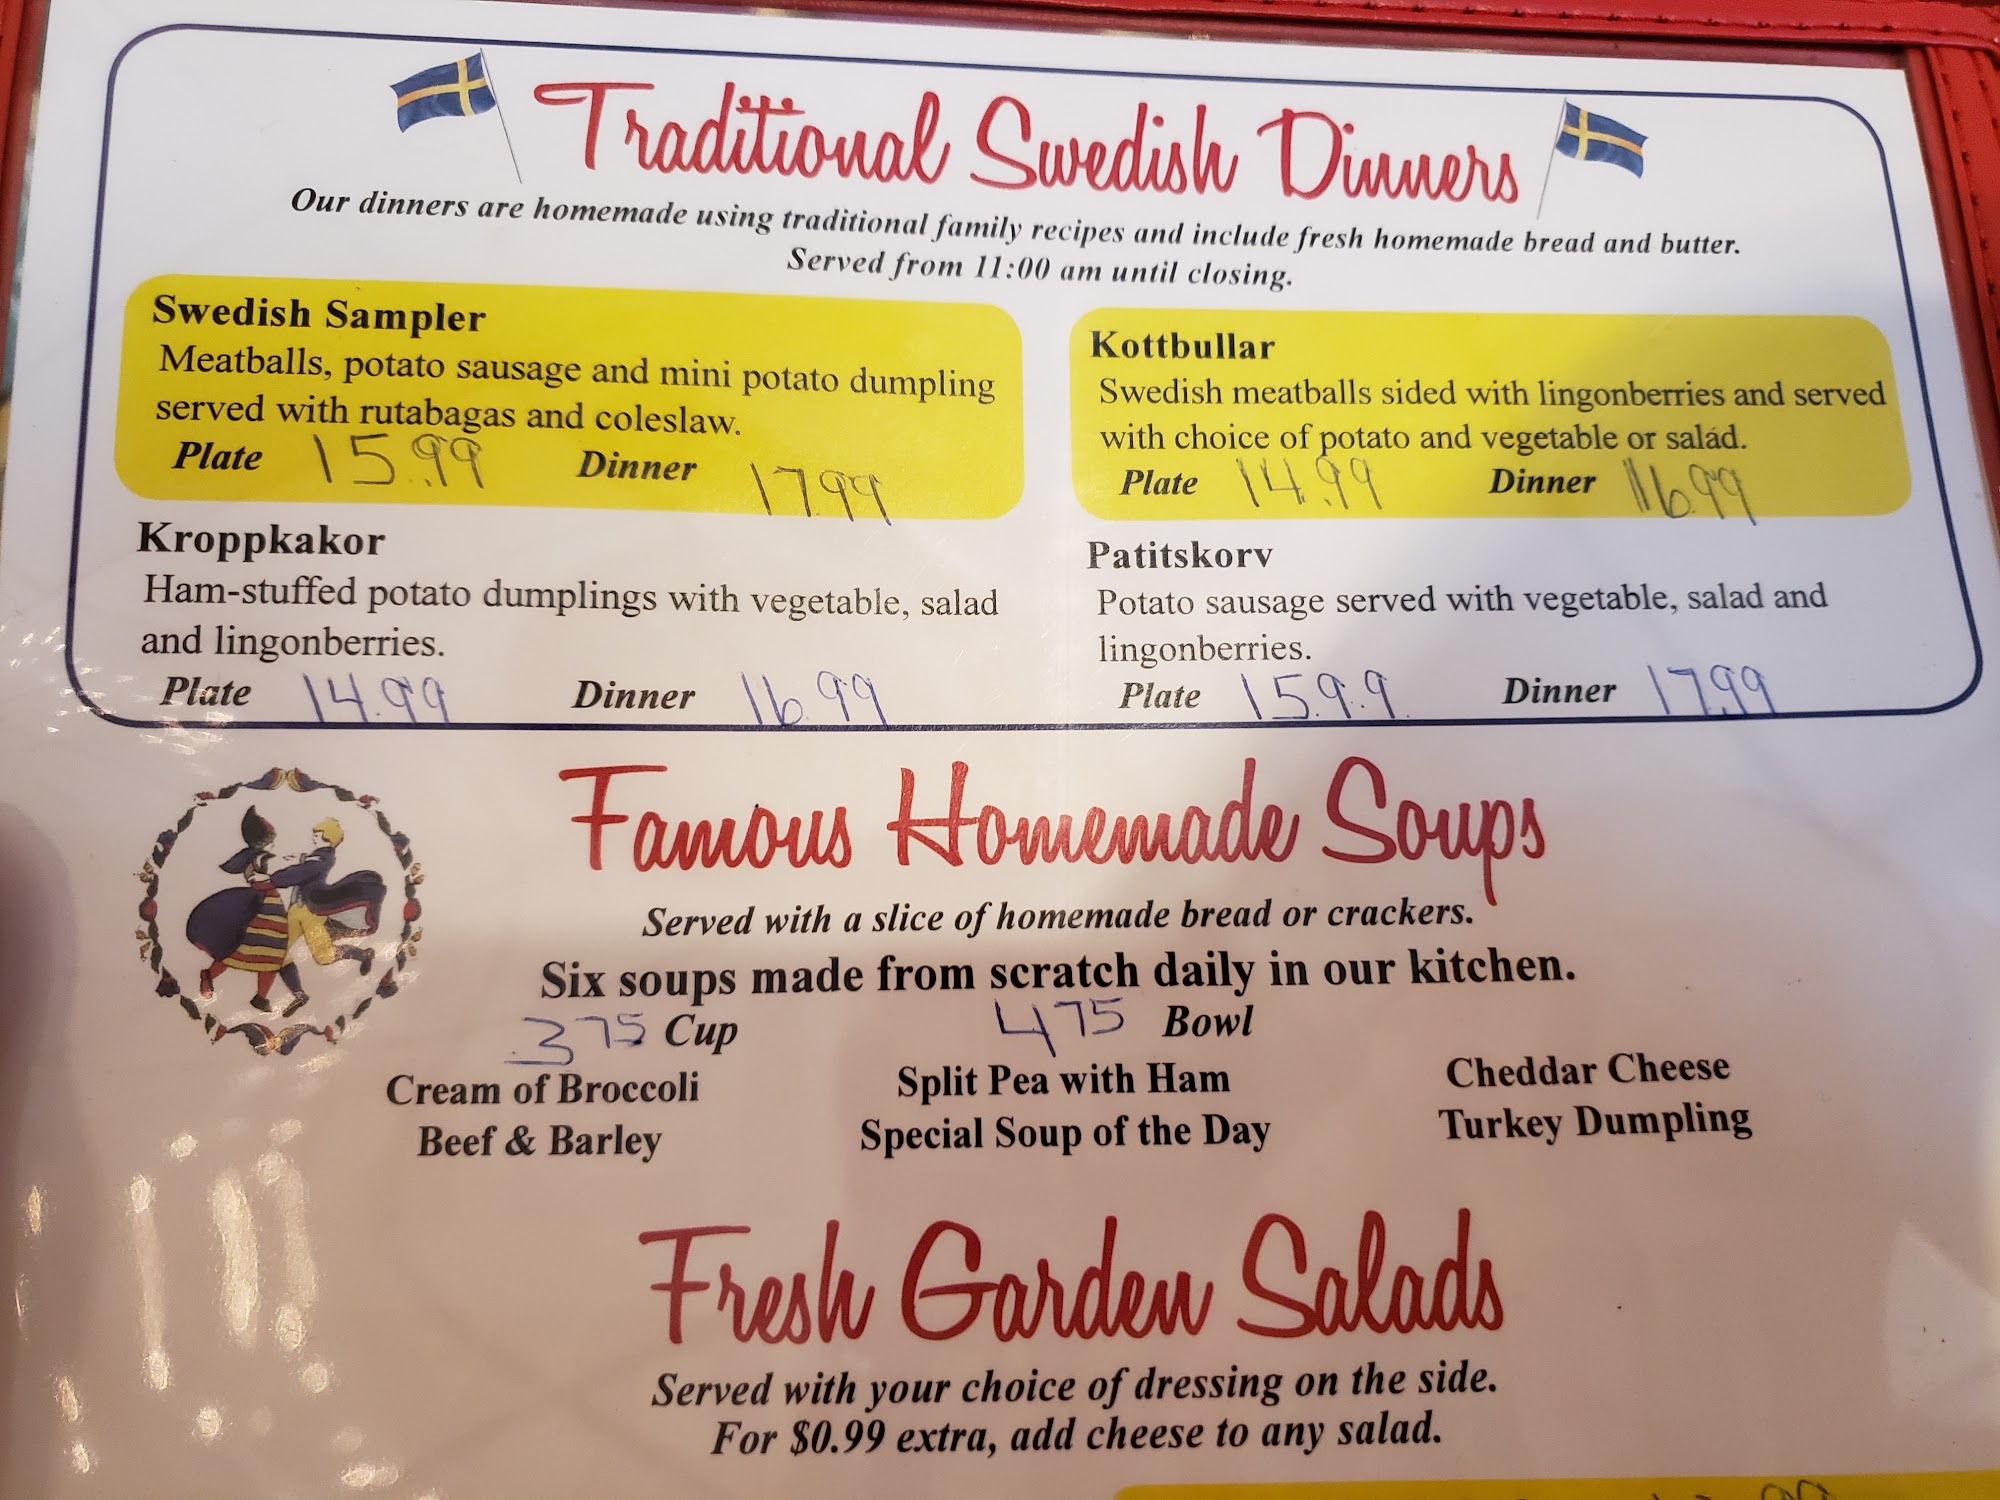 Traditional Swedish Dinners
Our dinners are homemade using traditional family recipes and include fresh homemade bread and butter.
Served from 11:00 am until closing.
Swedish Sampler
Meatballs, potato sausage and mini potato dumpling
served with rutabagas and coleslaw.
Plate 15.99 Dinner 17.99
Kottbullar
Swedish meatballs sided with lingonberries and served
with choice of potato and vegetable or salad.
Plate 14.99 Dinner 16.99
Kroppkakor
Ham-stuffed potato dumplings with vegetable, salad
and lingonberries.
Plate 14.99 Dinner 16.99
Patitskorv
Potato sausage served with vegetable, salad and
lingonberries.
Plate 15.9.9 Dinner 17.99
Famous Homemade Soups
Served with a slice of homemade bread or crackers.
Six soups made from scratch daily in our kitchen.
3 75 Cup 4 75 Bowl
Cream of Broccoli Split Pea with Ham Cheddar Cheese
Beef & Barley Special Soup of the Day Turkey Dumpling
Fresh Garden Salads
Served with your choice of dressing on the side.
For $0.99 extra, add cheese to any salad.